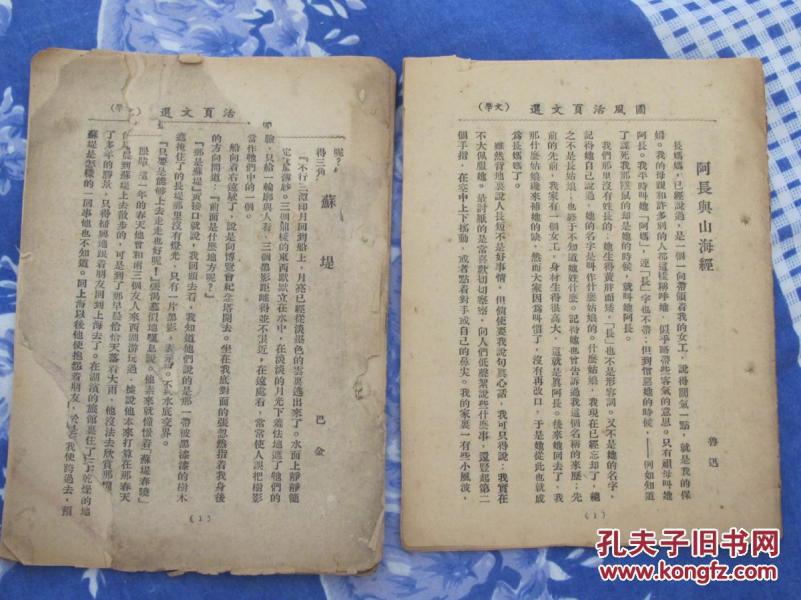 國風活頁文選（文學）
阿長與山海經
魯迅
長媽媽，已經說過，是一個一向帶領着我的女工，說得闊氣一點，就是我的保
姆。我的母親和許多別的人都這樣稱呼她，似乎略帶些客氣的意思。只有祖母叫她
阿長。我平時叫她「阿媽」，連「長」字也不帶；但到憎惡她的時候，——例如知道
了謀死我那隱鼠的却是她的時候，就叫她阿長。
我們那里沒有姓長的；她生得黃胖而矮，「長」也不是形容詞。又不是她的名字，
記得她自己說過，她的名字是叫作什麼姑娘的。什麼姑娘，我現在已經忘却了，總
之不是長姑娘；也終于不知道她姓什麼。記得她也曾告訴過我這個名稱的來歷：先
前的先前，我家有一個女工，身材生得很高大，這就是眞阿長。後來她回去了，我
那什麼姑娘纔來補她的缺，然而大家因爲叫慣了，沒有再改口，于是她從此也就成
爲長媽媽了。
雖然背地裏說人長短不是好事情，但倘使要我說句眞心話，我可只得說：我實在
不大佩服她。是討厭的是常喜歡切切察察，向人們低聲絮說些什麼事，還豎起第二
個手指，在空中上下搖動，或者點着對手或自己的鼻尖。我的家裏一有些小風波，
（1）
活頁文選（文學）
呢？
得三角
蘇堤
巴金
『不行』三潭印月回到船上，月亮已經從淡墨色的雲裏逃出來了。水面上靜靜籠
薄紗。三個鼠樣的東西默默立在水中，在淡淡的月光下羞怯地遮了牠們的
臉，只給一個輪廓與人看。三個黑影距離得並不很近，在遠處看，常常使人誤把樹影
當作牠們中的一個。
船向着右邊駛了，說是向博覽會紀念塔開去。坐在我底對面的張忽然指着我身後
的方向問道：『前面是什麼地方呢？』
『那是蘇堤』黃接口就說，我回頭去看，我知道他們說的是那一帶被黑漆漆的樹木
遮掩住了的長堤那里沒有燈光，只有一片黑影，表示出了不與水底交界。
『只要是能夠上去走走也好呢！』張渴慕似地嘆息說。他素來就憧憬着「蘇堤春曉」
這一年的春天他曾和兩三個友人來西湖游玩過，據說他本來打算在那春天
晨到蘇堤上去散步的，可是到了那早晨恰恰天落着大雨，他沒法去欣賞那想
了多年的勝景，只得掃興地跟着朋友回到上海去了。在湖濱的旅館裏住了三天乾燥的地
蘇堤是怎樣的一回事他也不知道。回上海以後他便抱怨着朋友，於是我使跨過去，預
（1）
孔夫子旧书网
www.kongfz.com